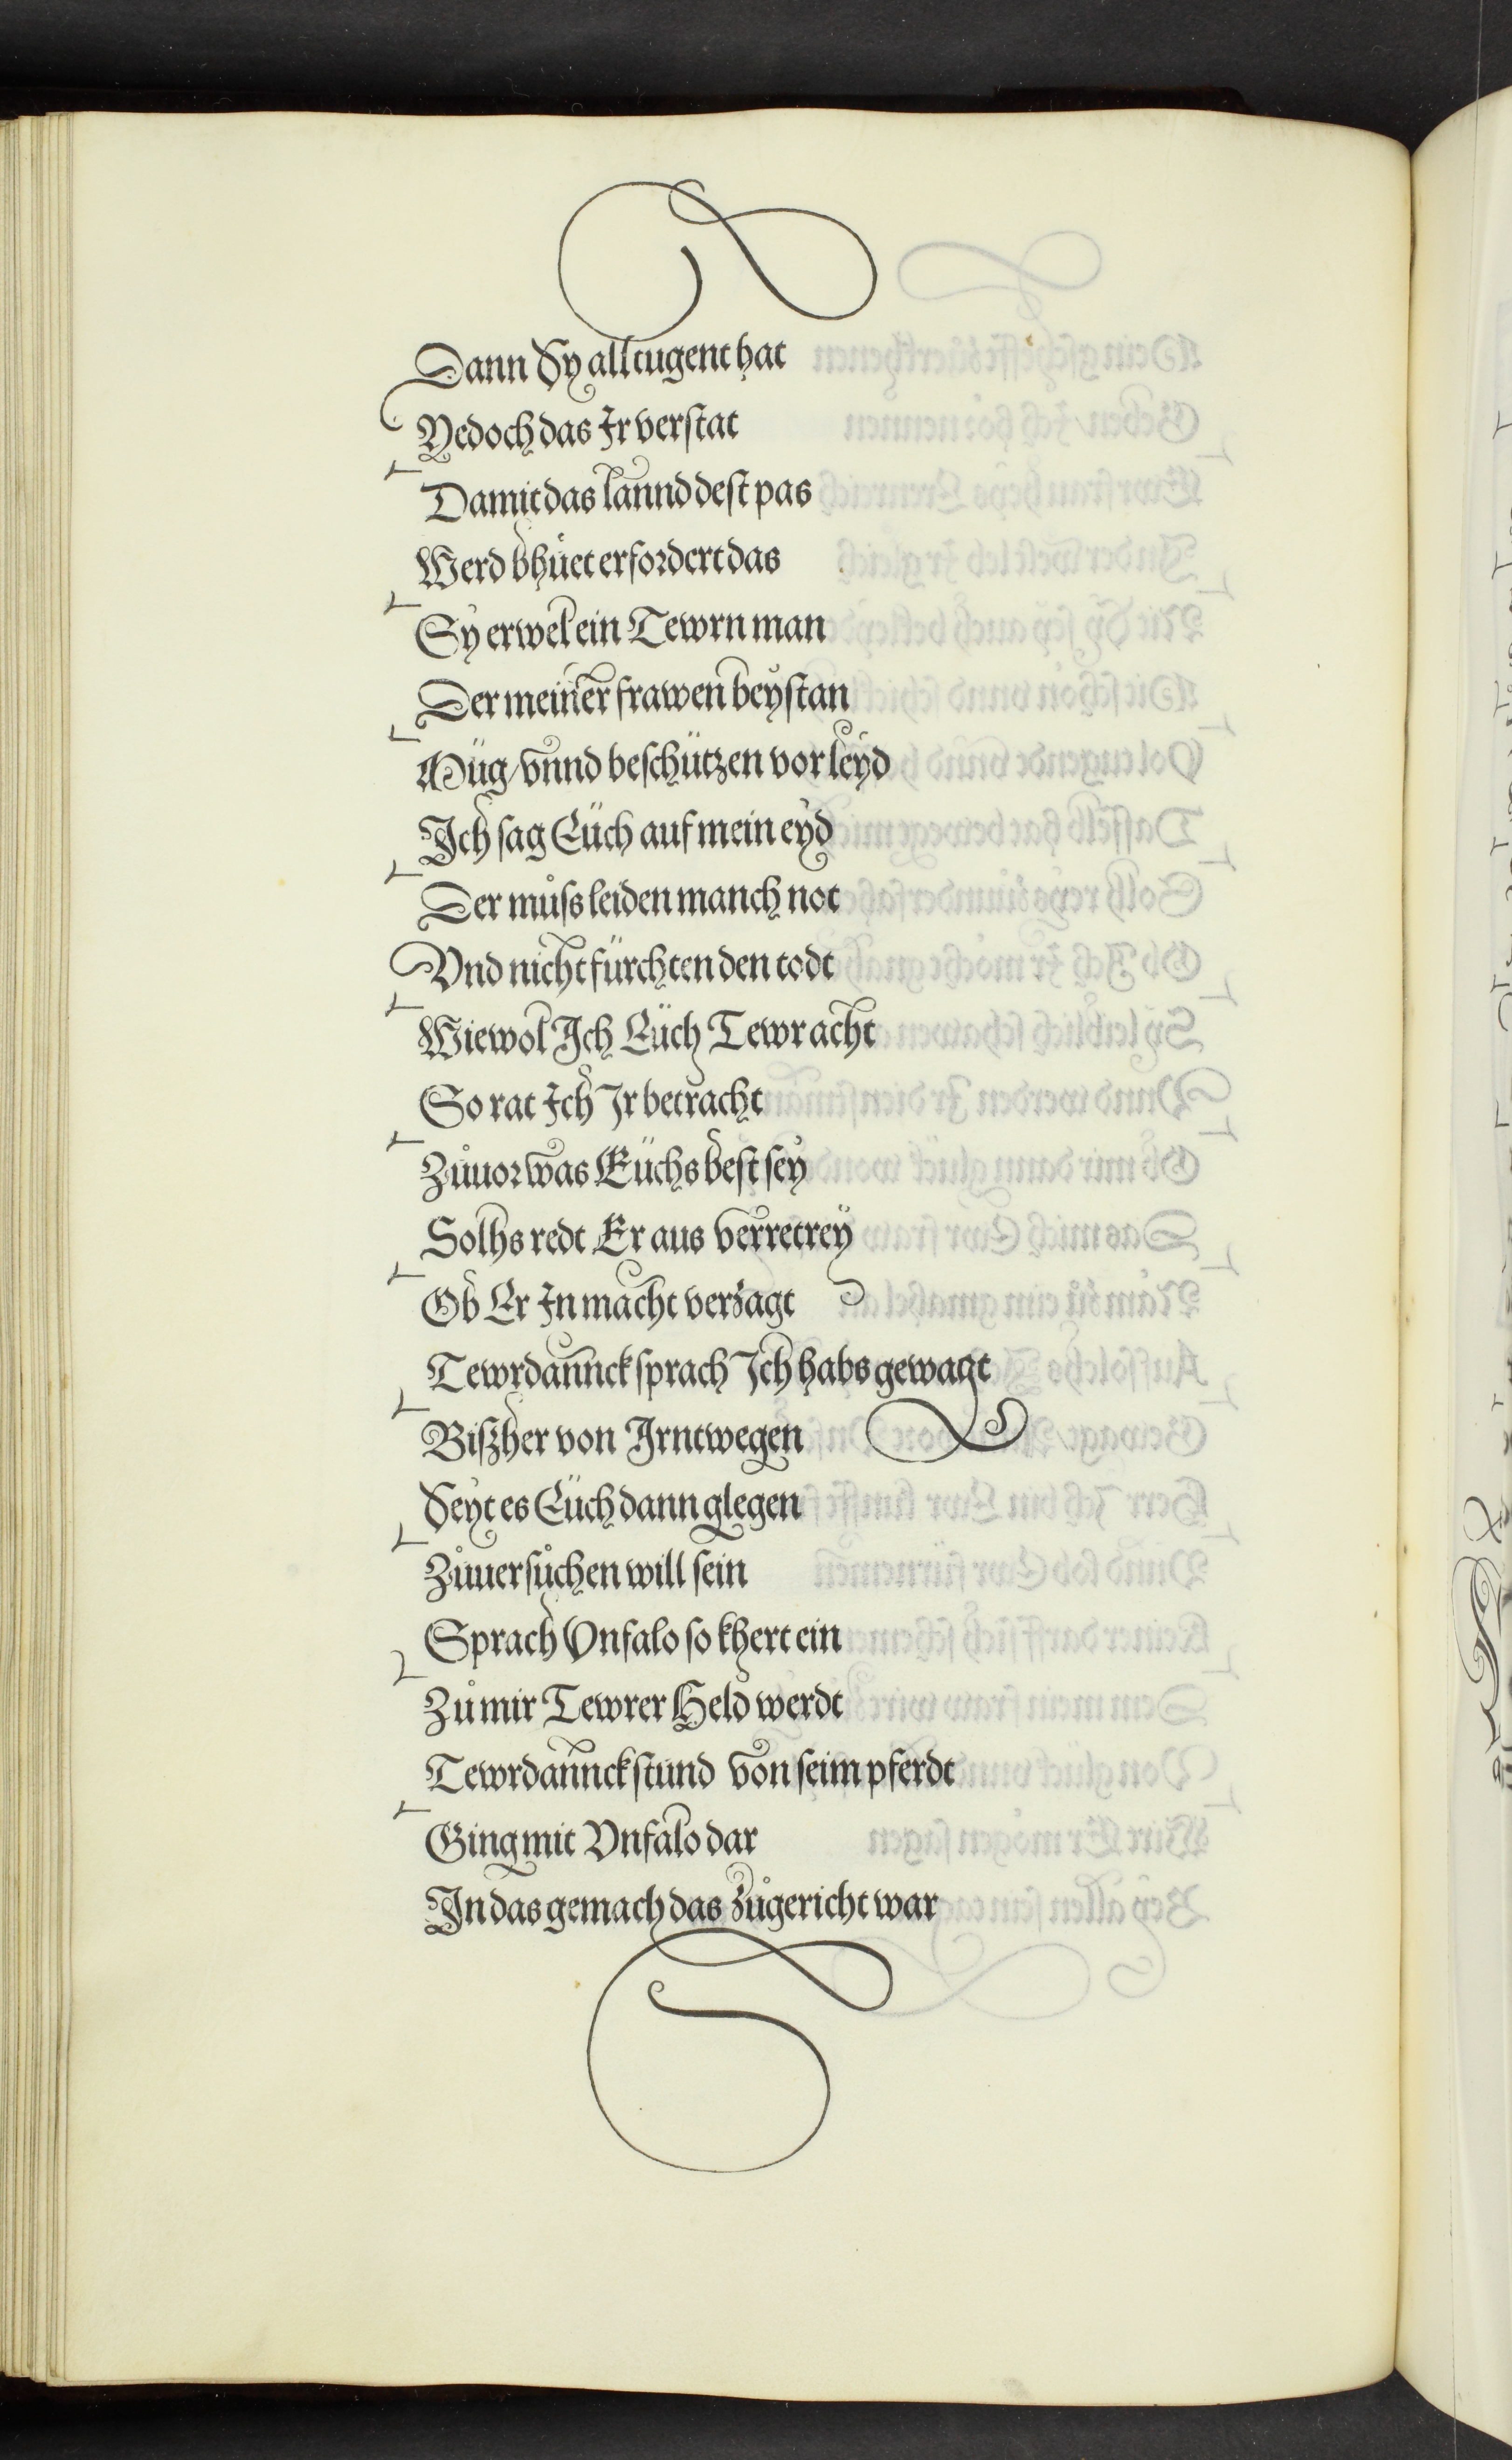 Dann Sy all tugent hat
Yedoch das Ir verstat
Damit das lannd dest pas
Werd bhüet erfordert das
Sy erwel ein Tewrn man
Der meiner frawen beystan
Müg/vnnd beschützen vor leyd
Ich sag Eüch auf mein eyd
Der můss leiden manch not
Vnd nicht fürchten den todt
Wiewol Ich Eüch Tewr acht
So rat Ich Ir betracht
Zůuor was Eüchs best sey
Solhs redt Er aus verretrey
Ob Er In macht verzagt
Tewrdannck sprach Ich habs gewagt
Biszher von Irntwegen
Seyt es Eüch dann glegen
Zůuersůchen will sein
Sprach Vnfalo so khert ein
Zů mir Tewrer Held werdt
Tewrdannck stund von seim pferdt
Ging mit Vnfalo dar
In das gemach das zůgericht war